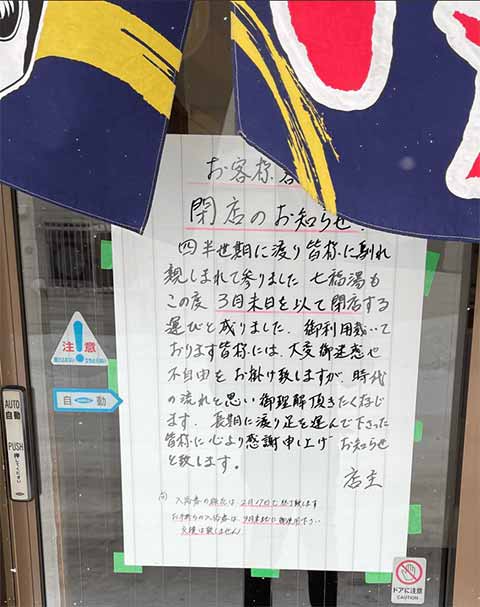 お客様各
閉店のお知らせ!
四半世期に渡り皆様に馴れ
親しまれて参りました七福湯も
この度 3月末日を以て閉店する
運びと成りました. 御利用戴いて
おります皆様には、大変御迷惑や
不自由をお掛け致しますが、時代
の流れと思い御理解頂きたく存じ
ます。長期に渡り足を運んで下さった
皆様に心より感謝申し上げ お知らせ
と致します。
店主
入浴券の販売は、2月17日で終了致します
お手持ちの入浴券は、3月末日迄に御使用下さい
交換は致しません
注意
自動
AUTO
自動
PUSH
押してください
ドアに注意
CAUTION